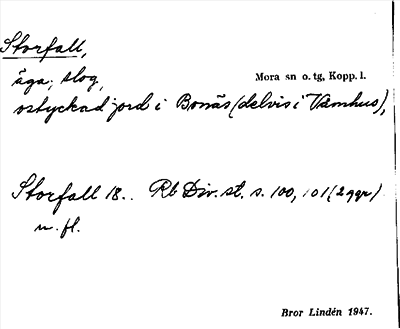 Storfall,
äga; slog,
Mora sn o. tg, Kopp. l.
ostyckad jord i Bonäs (delvis i Våmhus),
Storfall 18.. Rb Div. st. s. 100, 101 (2 ggr)
m. fl.
Bror Lindén 1947.